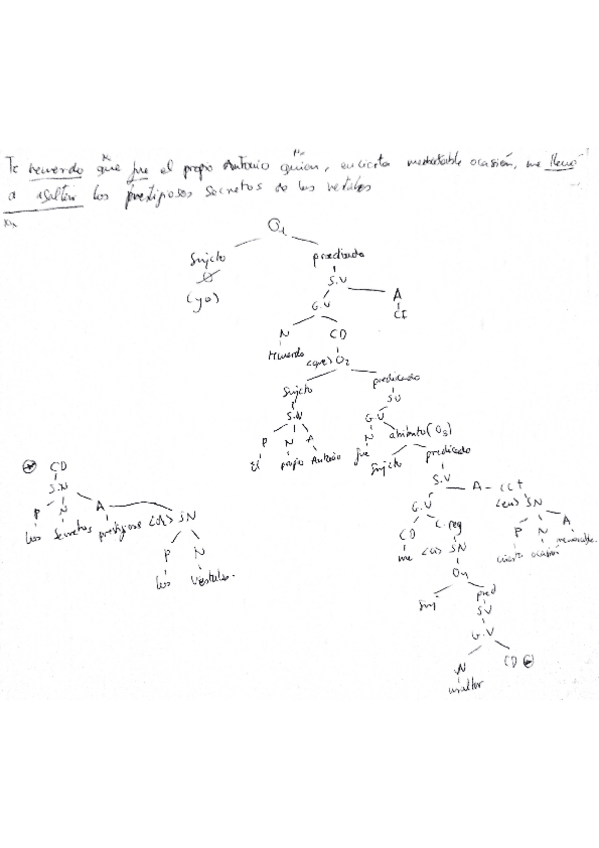 Te recuerdo que fue el propio Antonio quien, en cierta memorable ocasión, me llevó
a asaltar los prestigiosos secretos de las vestales
O1
Sujeto predicado
Ø S.V
(yo) G.V A
CI
N CD
recuerdo (que) O2
Sujeto predicado
S.N SV
G.V
P N A N atributo (O3)
El propio Antonio fue Sujeto predicado
S.V
G.V A - CCT
CD C. reg (en) SN
me (a) SN P N A
cierta ocasión memorable
O4
Suj pred
SV
G.V
N CD
asaltar
CD
S.N
P N A
los secretos prestigiosos (de) SN
P N
las vestales.